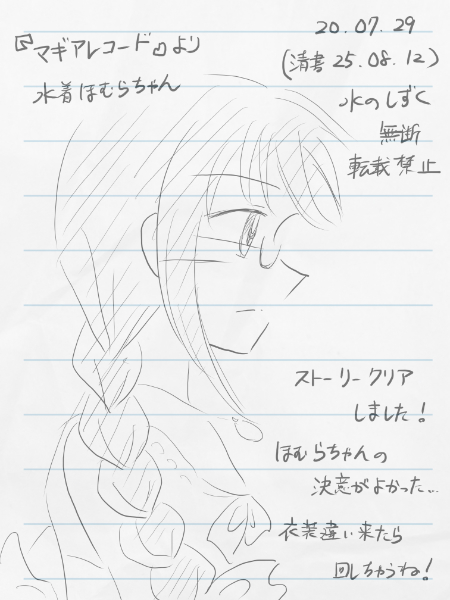 『マギアレコード』より
水着ほむらちゃん
20.07.29
(清書25.08.12)
水のしずく
無断
転載禁止
ストーリークリア
しました!
ほむらちゃんの
決意がよかった…
衣装違い来たら
回しちゃうね!